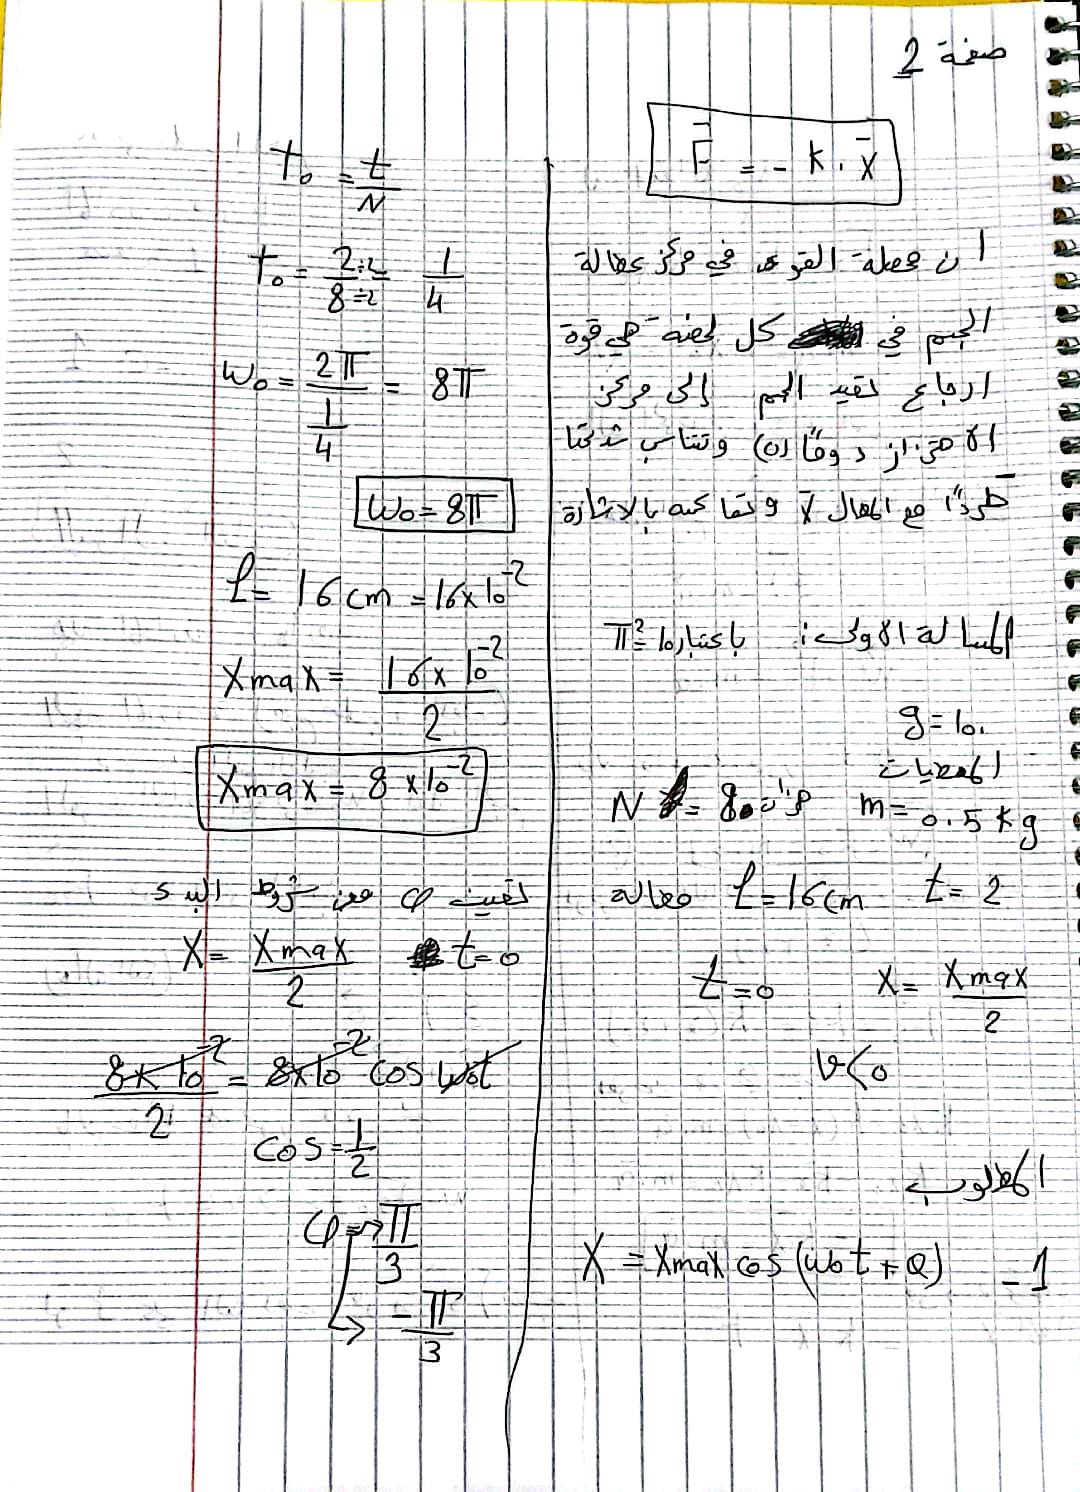 صفحة 2
F = - K . x
ان محصلة القوى في مركز عطالة
الجسم في كل لحظة هي قوة
ارجاع تعيد الجسم إلى مركز
الاهتزاز دوماً (o) وتتناسب شدتها
طرداً مع المطال x̄ وتعاكسه بالاشارة
المسالة الاولى: باعتبار π² = 10
g = 10.
المعطيات
m = 0.5 Kg N = 8 هزات
t = 2 L = 16 cm
x = Xmax / 2 t = 0
v < 0
المطلوب
1 - X = Xmax cos (ωo t + φ)
To = t / N
To = 2 ÷2 / 8 ÷2 = 1/4
ωo = 2π / 1/4 = 8π
ωo = 8π
L = 16 cm = 16 x 10⁻²
Xmax = 16 x 10⁻² / 2
Xmax = 8 x 10⁻²
تعيين φ من شروط البدء
X = Xmax / 2 t = 0
8 x 10⁻² / 2 = 8 x 10⁻² cos ωot
cos = 1/2
φ = π/3
-π/3